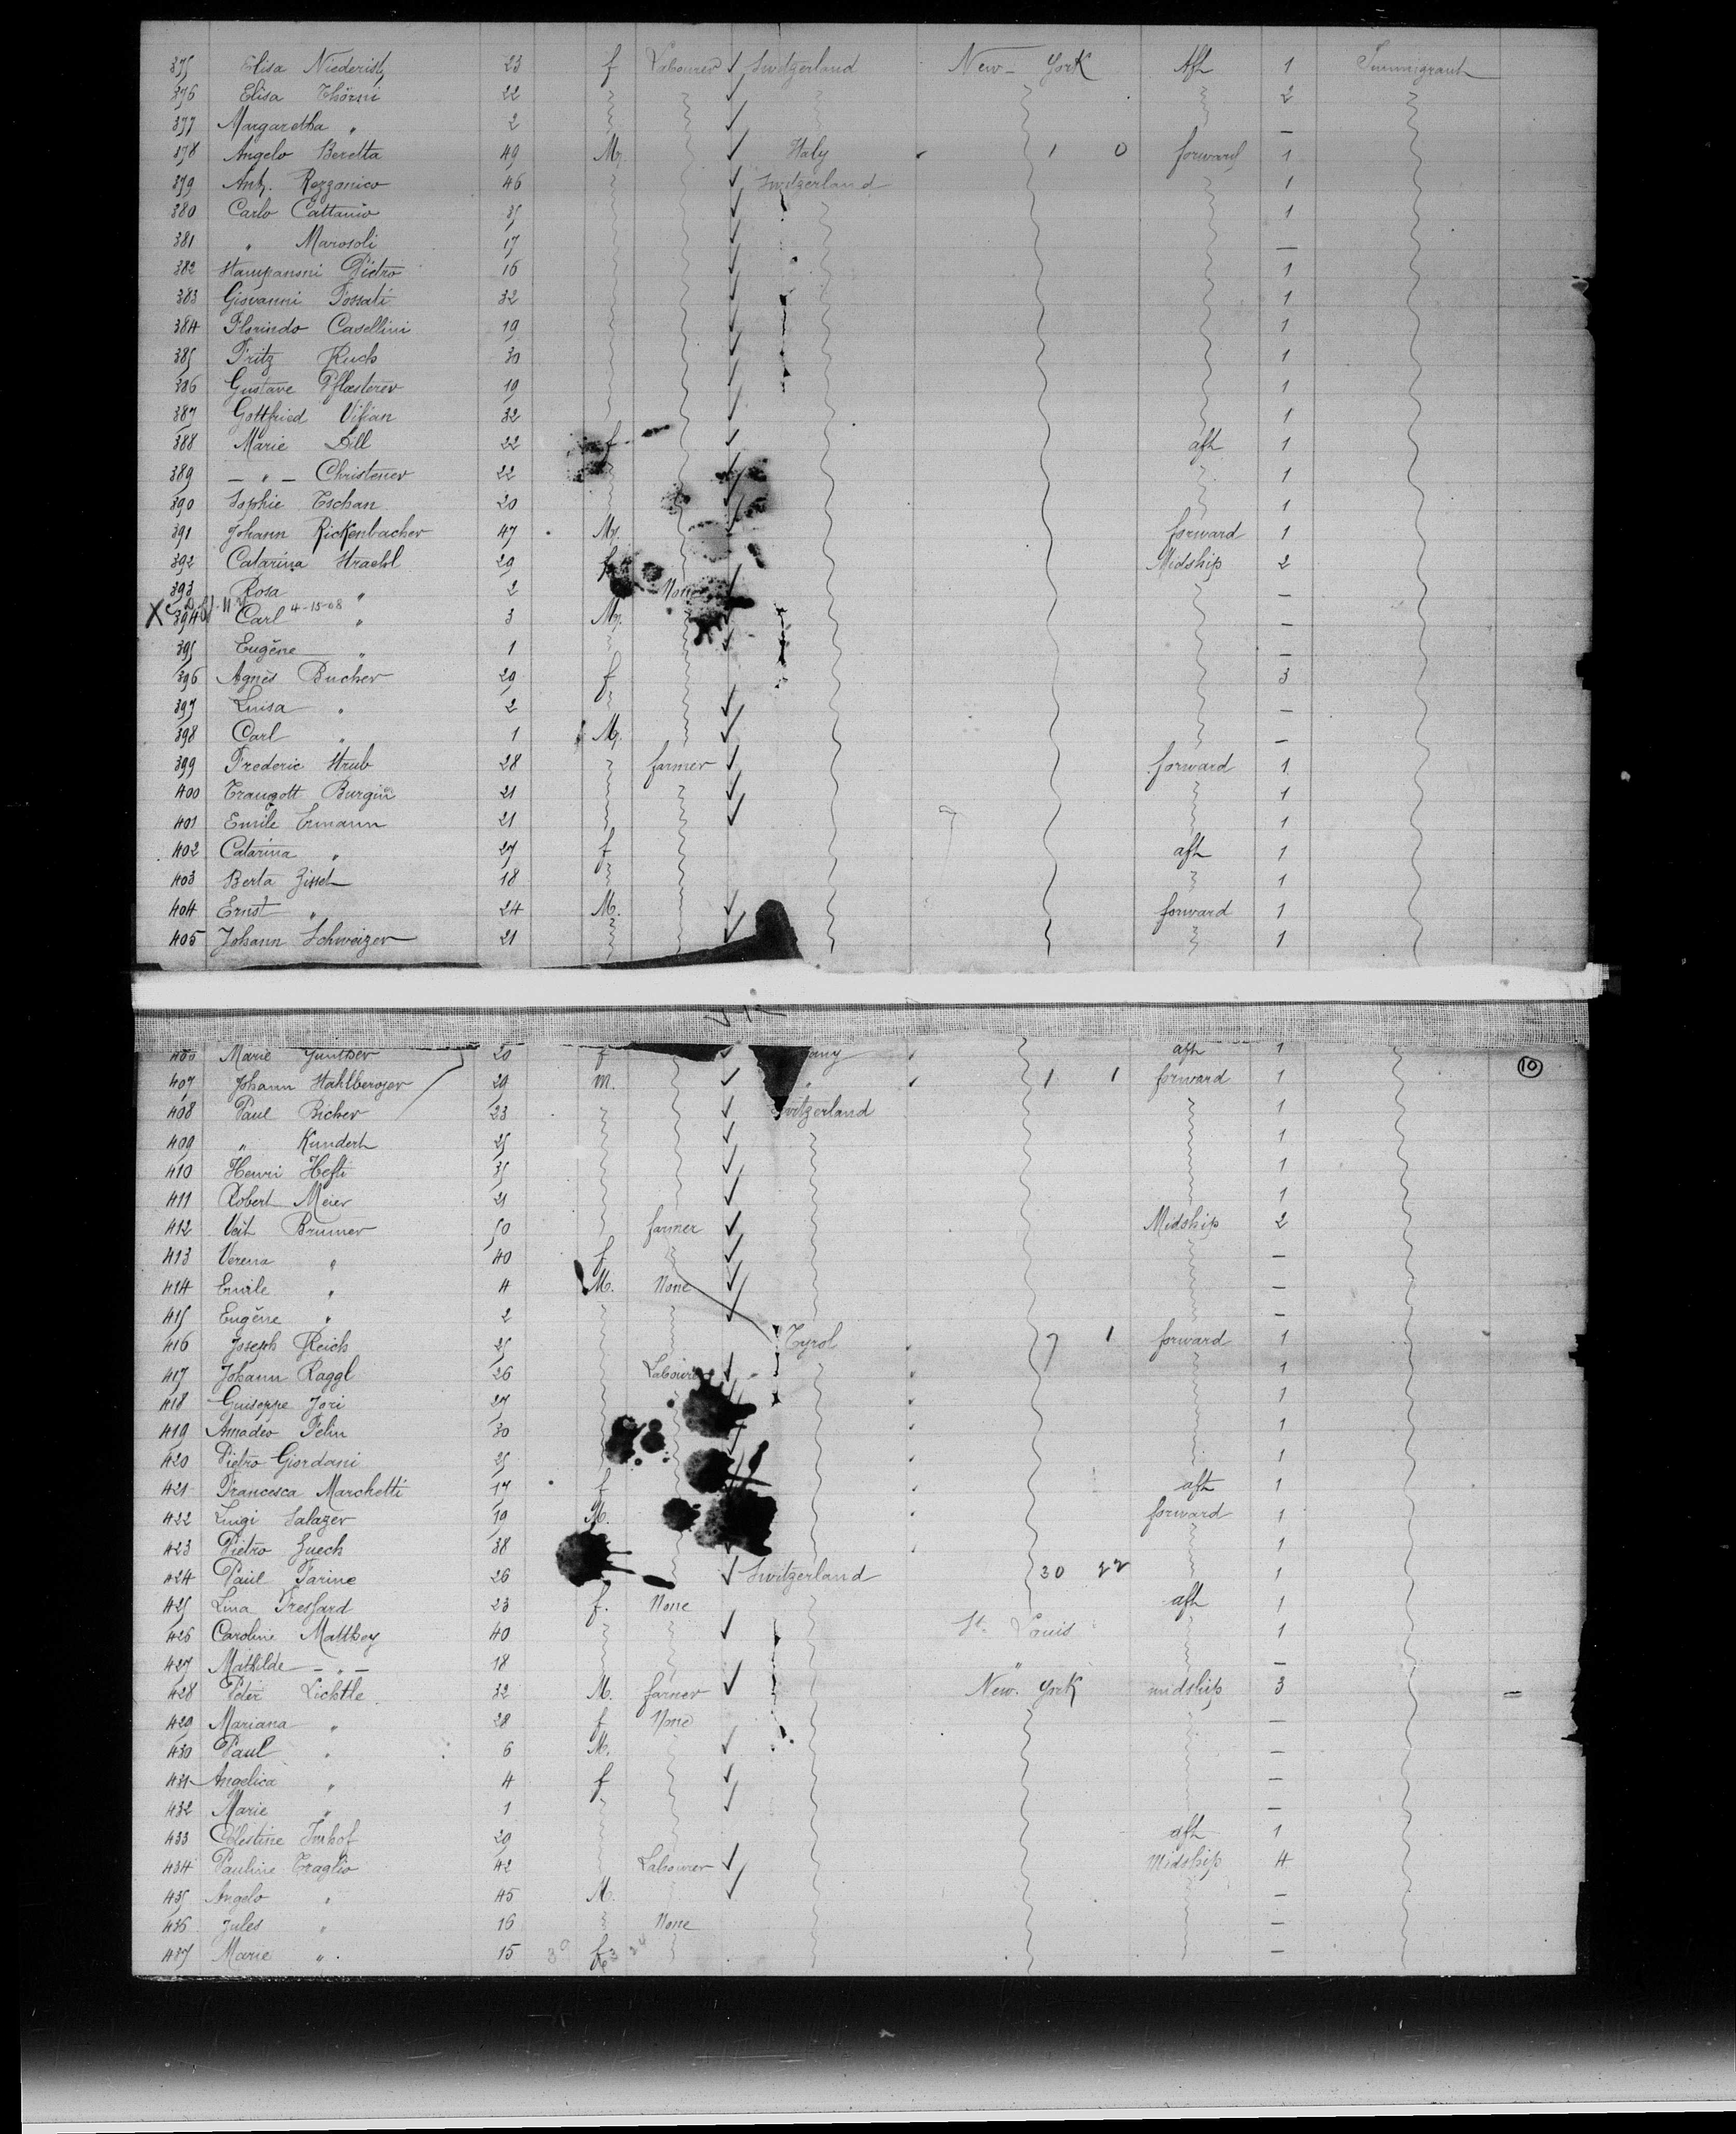 375 Elisa Niederist 23 f Labourer ✓ Switzerland New-York Aft 1 Immigrant
376 Elisa Thörni 22 ✓ 2
377 Margaretha " 2 ✓ —
378 Angelo Beretta 49 M. ✓ Italy 1 0 forward 1
379 Ant. Rezzonico 46 ✓ Switzerland 1
380 Carlo Cattanio 35 ✓ 1
381 " Marosoli 17 ✓ —
382 Pietro 16 ✓ 1
383 Giovanni Fossati 32 ✓ 1
384 Florindo Casellini 19 ✓ 1
385 Fritz Ruch 30 ✓ 1
386 Gustave Pflesterer 19 ✓ 1
387 Gottfried Vifian 32 ✓ 1
388 Marie Dill 22 f ✓ aft 1
389 — " — Christener 22 ✓ 1
390 Sophie Tschan 20 ✓ 1
391 Johann Rickenbacher 47 M. forward 1
392 Catarina Straehl 29 f Midship 2
393 Rosa " 2 None ✓ —
X 394 Carl 4-15-08 " 3 M. —
395 Eugène " 1 ✓ —
396 Agnès Bucher 29 f 3
397 Luisa " 2 ✓ —
398 Carl " 1 M. ✓ —
399 Frederic Strub 28 farmer ✓ forward 1
400 Traugott Burgin 21 ✓ 1
401 Emile Ermann 21 ✓ 1
402 Catarina " 27 f aft 1
403 Berta Zisset 18 1
404 Ernst " 24 M. ✓ forward 1
405 Johann Schweizer 21 ✓ 1
Marie Junther 20 f ✓ any aft 1
10
407 Johann Stahlberger 29 m. ✓ " 1 1 forward 1
408 Paul Richer 23 ✓ Switzerland 1
409 " Kundert 25 ✓ 1
410 Henri Hefti 35 ✓ 1
411 Robert Meier 21 ✓ 1
412 Veit Brunner 50 farmer ✓ Midship 2
413 Verena " 40 f ✓ —
414 Emile " 4 M. None ✓ —
415 Eugène " 2 ✓ —
416 Joseph Reich 25 Tyrol 7 1 forward 1
417 Johann Raggl 26 Labourer ✓ 1
418 Guiseppe Jori 27 1
419 Amadeo Felin 30 1
420 Pietro Giordani 25 1
421 Francesca Marchetti 17 f aft 1
422 Luigi Salazer 19 M. forward 1
423 Pietro Zuech 38 1
424 Paul Farine 26 ✓ Switzerland 30 22 1
425 Lina Fressard 23 f. None aft 1
426 Caroline Matthey 40 ✓ St. Louis 1
427 Mathilde — " — 18 " —
428 Peter Lichtle 32 M. farmer ✓ New York midship 3
429 Mariana " 28 f None —
430 Paul " 6 M. ✓ —
431 Angelica " 4 f ✓ —
432 Marie " 1 ✓ —
433 Célestine Imhof 29 aft 1
434 Pauline Traglio 42 Labourer ✓ Midship 4
435 Angelo " 45 M. ✓ —
436 Jules " 16 None —
437 Marie " 15 f —